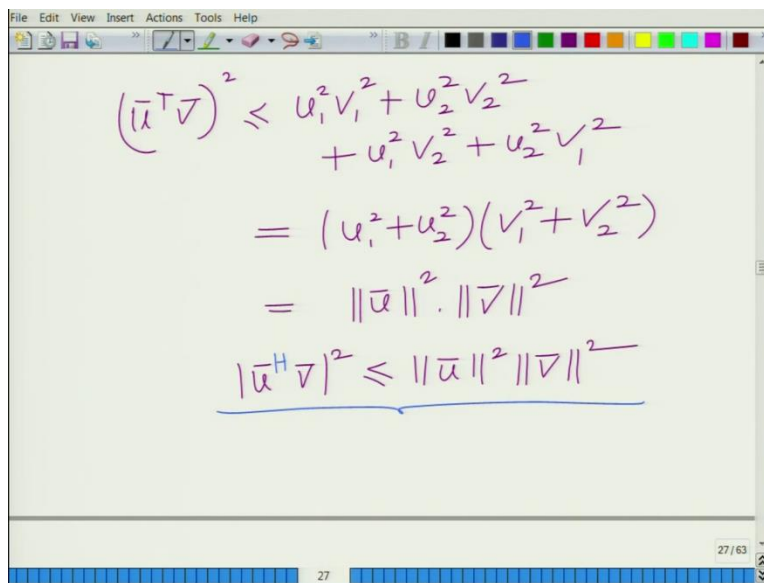 File Edit View Insert Actions Tools Help
B I
(ū^T v̄)^2 ≤ u_1^2 v_1^2 + u_2^2 v_2^2
+ u_1^2 v_2^2 + u_2^2 v_1^2
= (u_1^2 + u_2^2)(v_1^2 + v_2^2)
= ||ū||^2 . ||v̄||^2
|ū^H v̄|^2 ≤ ||ū||^2 ||v̄||^2
27/63
27